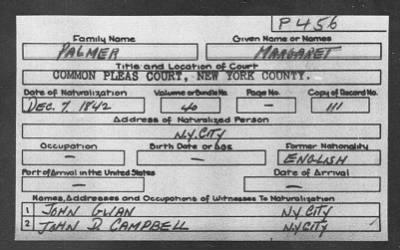 P 456
Family Name Given Name or Names
PALMER MARGARET
Title and Location of Court
COMMON PLEAS COURT, NEW YORK COUNTY.
Date of Naturalization Volume or Bundle No. Page No. Copy of Record No.
DEC. 7. 1842 40 — 111
Address of Naturalized Person
N.Y. CITY
Occupation Birth Date or Age Former Nationality
— — ENGLISH
Port of Arrival in the United States Date of Arrival
— —
Names, Addresses and Occupations of Witnesses To Naturalization
1 JOHN GWAN N.Y. CITY
2 JOHN D. CAMPBELL N.Y. CITY